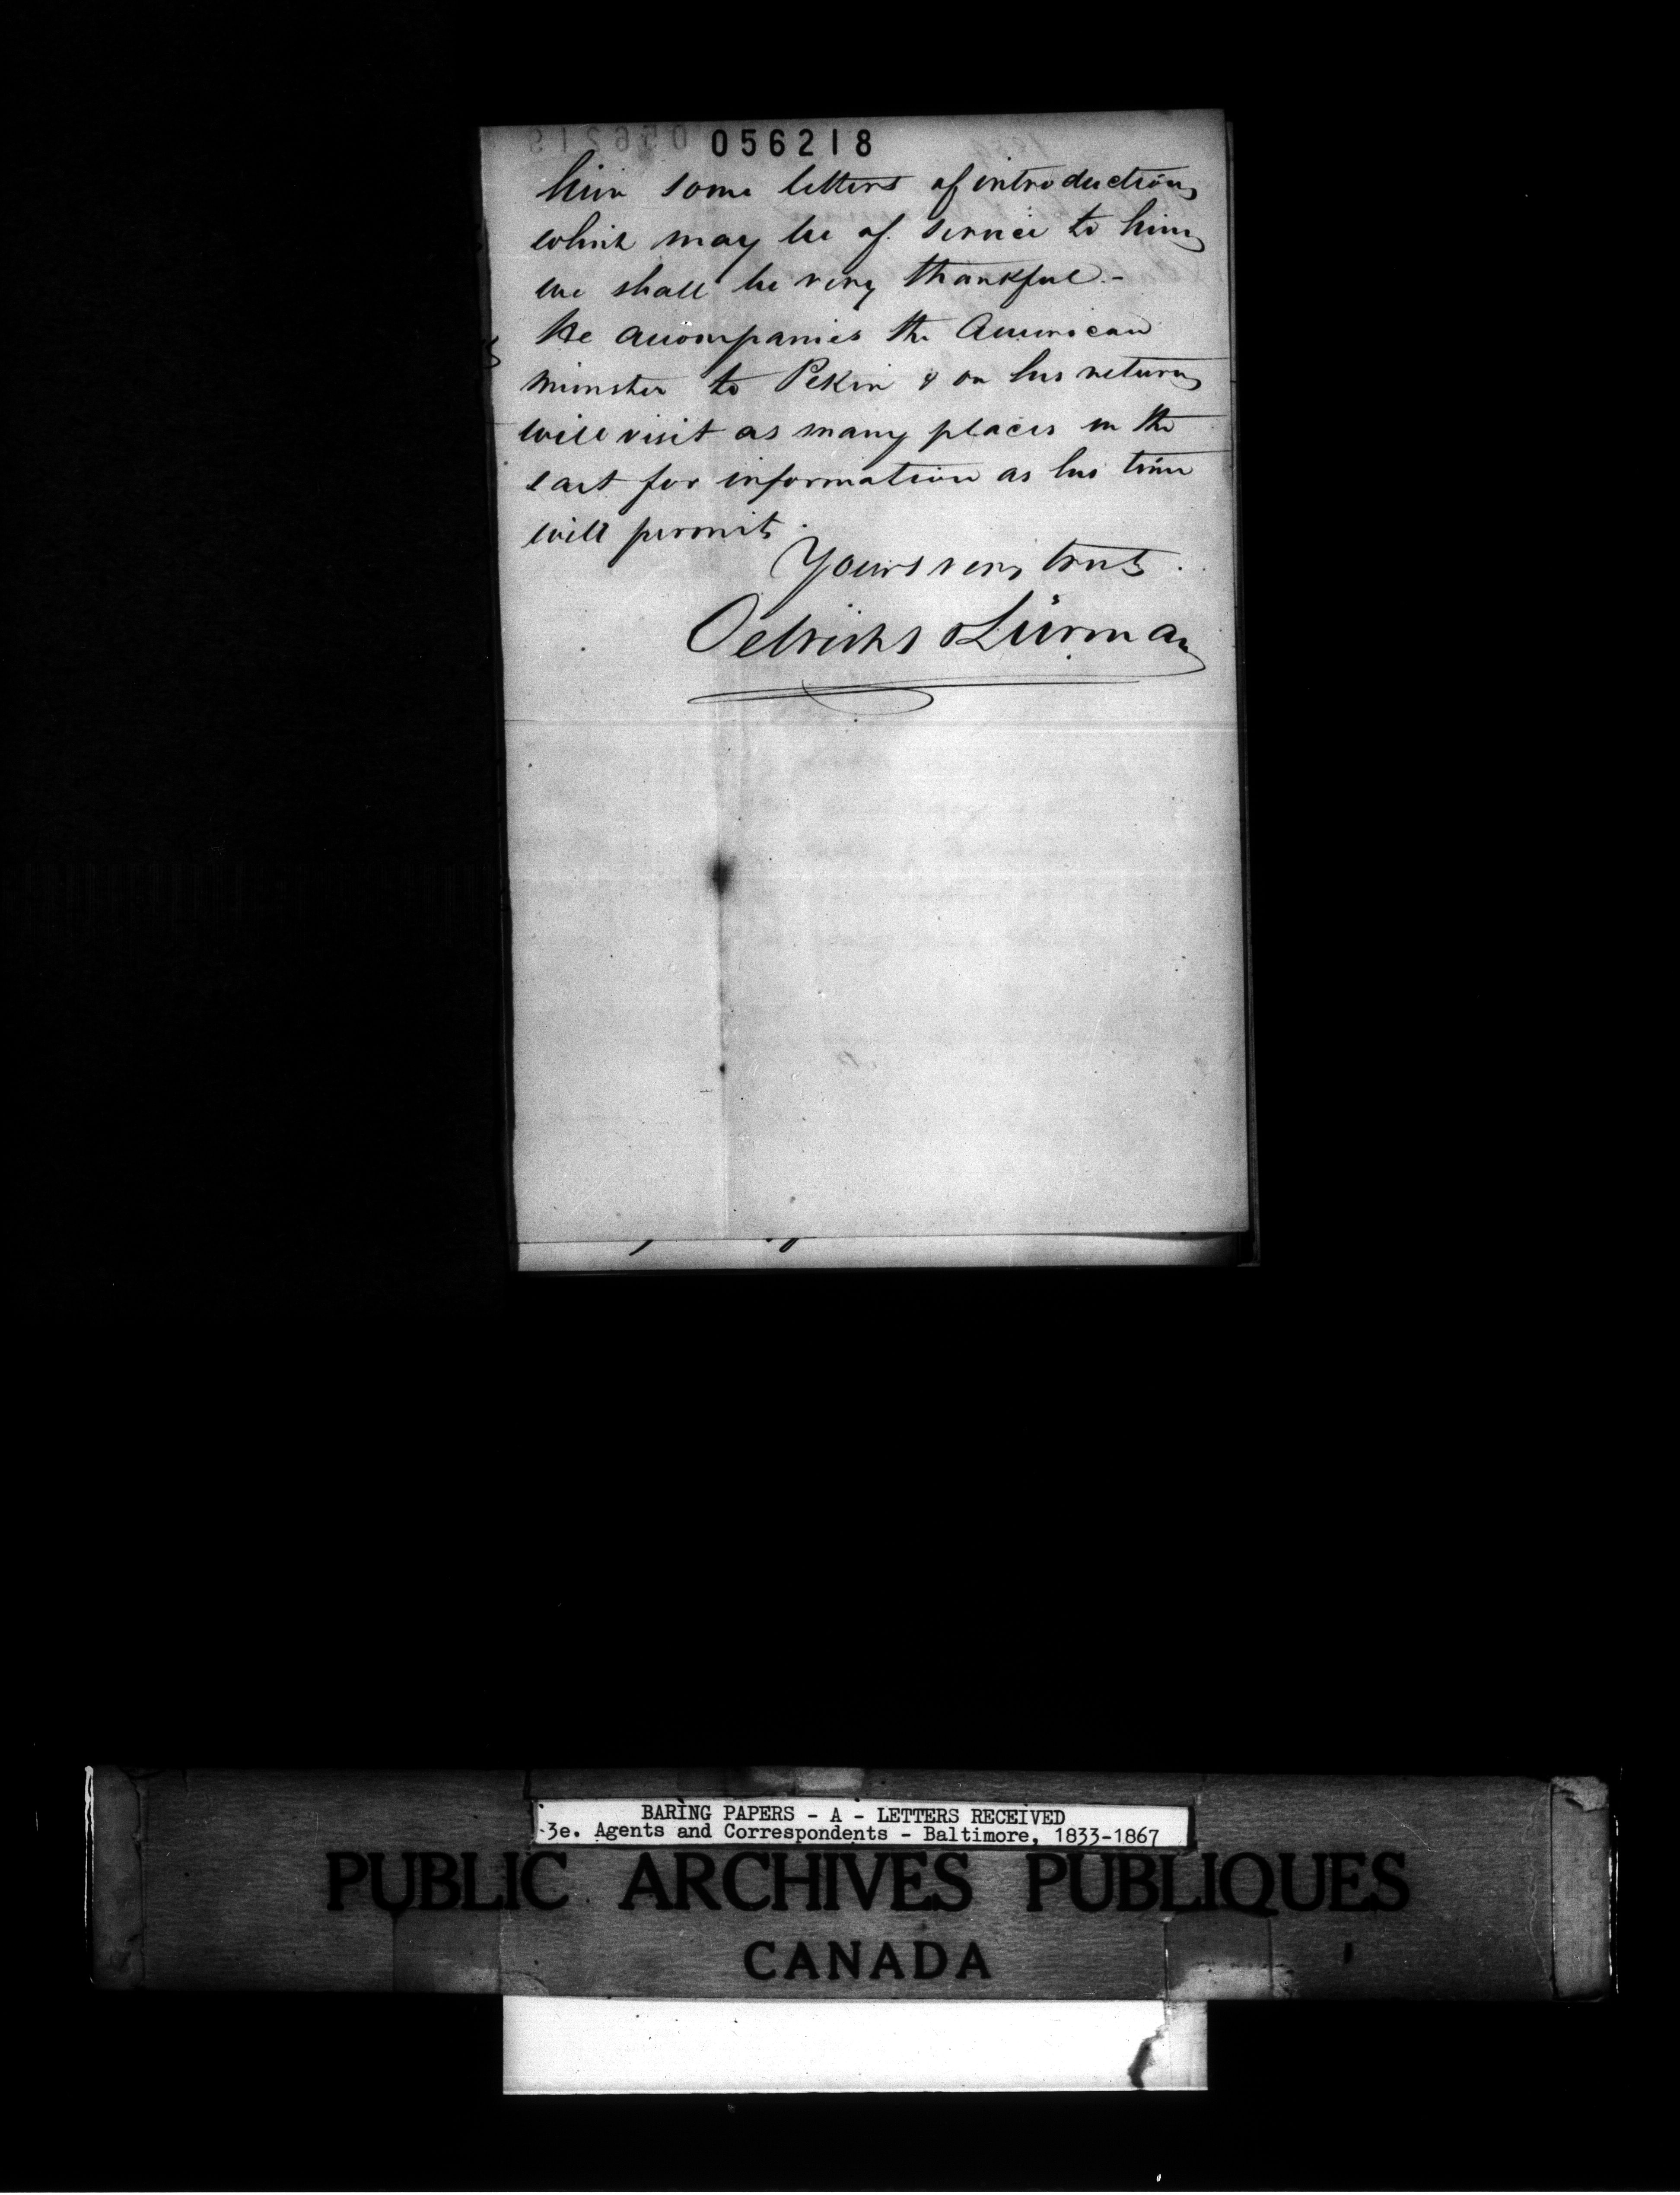 056218
him some letters of introduction
which may be of service to him
we shall be very thankful.-
He accompanies the American
minister to Pekin & on his return
will visit as many places in the
east for information as his time
will permit.
Yours very truly
Oelrichs & Lürman
BARING PAPERS - A - LETTERS RECEIVED
3e. Agents and Correspondents - Baltimore, 1833-1867
PUBLIC ARCHIVES PUBLIQUES
CANADA